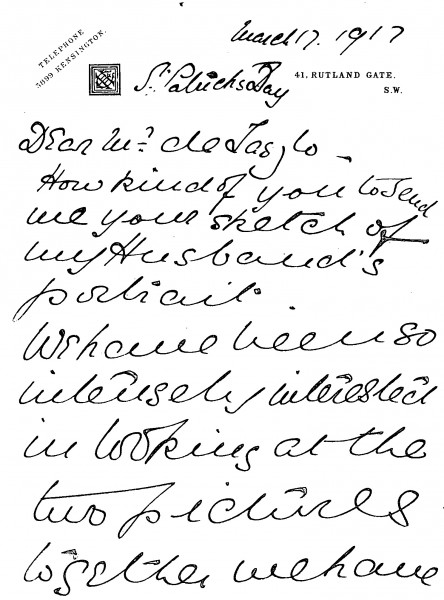 March 17. 1917
TELEPHONE
5699 KENSINGTON.
St. Patricks Day
41, RUTLAND GATE.
S.W.
Dear Mr. de Laszlo -
How kind of you to send
me your sketch of
my Husband's
portrait.
We have been so
intensely interested
in looking at the
two pictures
together we have